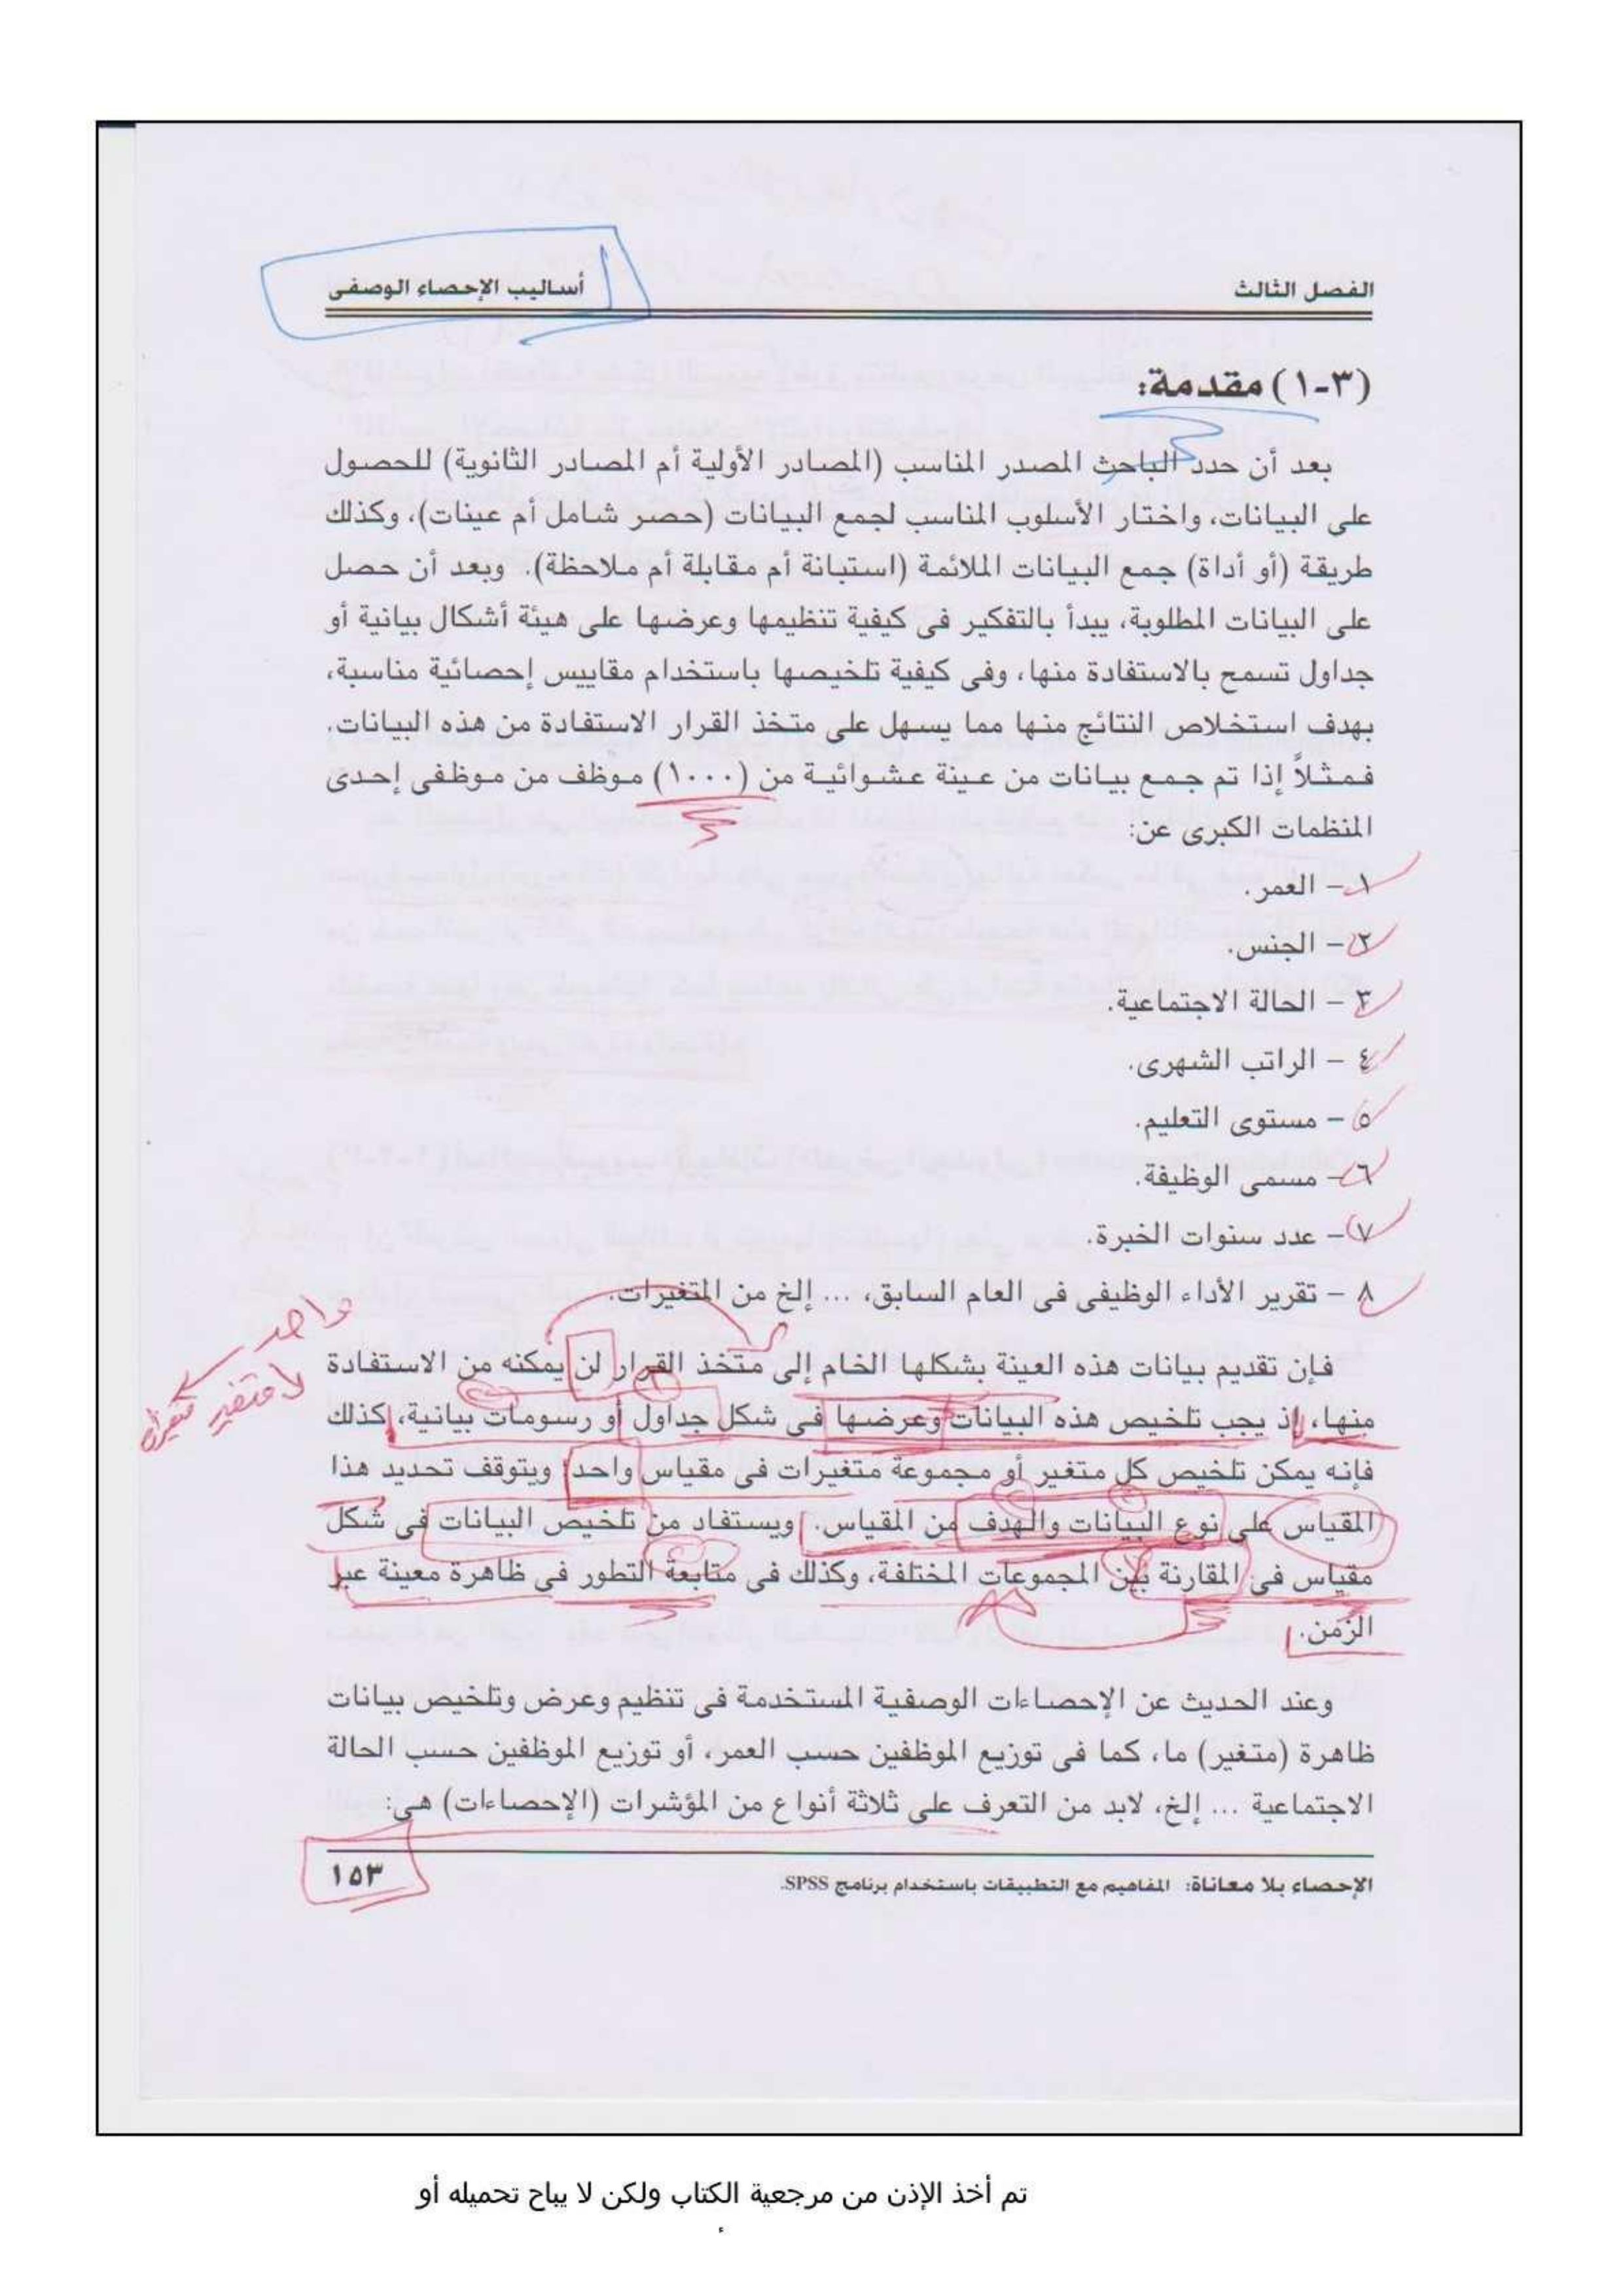 الفصل الثالث
أساليب الإحصاء الوصفى
(٣-١) مقدمة:
بعد أن حدد الباحث المصدر المناسب (المصادر الأولية أم المصادر الثانوية) للحصول
على البيانات، واختار الأسلوب المناسب لجمع البيانات (حصر شامل أم عينات)، وكذلك
طريقة (أو أداة) جمع البيانات الملائمة (استبانة أم مقابلة أم ملاحظة). وبعد أن حصل
على البيانات المطلوبة، يبدأ بالتفكير فى كيفية تنظيمها وعرضها على هيئة أشكال بيانية أو
جداول تسمح بالاستفادة منها، وفى كيفية تلخيصها باستخدام مقاييس إحصائية مناسبة،
بهدف استخلاص النتائج منها مما يسهل على متخذ القرار الاستفادة من هذه البيانات.
فمثلاً إذا تم جمع بيانات من عينة عشوائية من (١٠٠٠) موظف من موظفى إحدى
المنظمات الكبرى عن:
١- العمر.
٢- الجنس.
٣ - الحالة الاجتماعية.
٤ - الراتب الشهرى.
٥ - مستوى التعليم.
٦- مسمى الوظيفة.
٧- عدد سنوات الخبرة.
٨ - تقرير الأداء الوظيفى فى العام السابق، ... إلخ من المتغيرات.
واحد
لا متغير
فإن تقديم بيانات هذه العينة بشكلها الخام إلى متخذ القرار لن يمكنه من الاستفادة
منها، إذ يجب تلخيص هذه البيانات وعرضها فى شكل جداول أو رسومات بيانية، كذلك
فإنه يمكن تلخيص كل متغير أو مجموعة متغيرات فى مقياس واحد؛ ويتوقف تحديد هذا
المقياس على نوع البيانات والهدف من المقياس. ويستفاد من تلخيص البيانات فى شكل
مقياس فى المقارنة بين المجموعات المختلفة، وكذلك فى متابعة التطور فى ظاهرة معينة عبر
الزمن.
وعند الحديث عن الإحصاءات الوصفية المستخدمة فى تنظيم وعرض وتلخيص بيانات
ظاهرة (متغير) ما، كما فى توزيع الموظفين حسب العمر، أو توزيع الموظفين حسب الحالة
الاجتماعية ... إلخ، لابد من التعرف على ثلاثة أنواع من المؤشرات (الإحصاءات) هى:
الإحصاء بلا معاناة: المفاهيم مع التطبيقات باستخدام برنامج SPSS.
١٥٣
تم أخذ الإذن من مرجعية الكتاب ولكن لا يباح تحميله أو